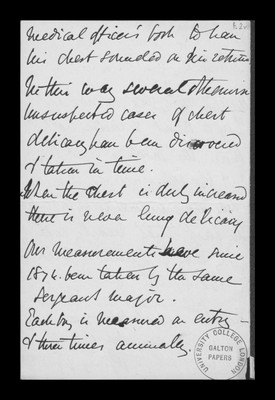 medical officers book to have
his chest sounded on his return
In this way several otherwise
unsuspected cases of chest
delicacy have been discovered
& taken in time.
When the Chest is duly increased
there is never lung delicacy
Our measurements have since
1874. been taken by the same
Sergeant major.
Each boy is measured on entry –
& three times annually.
UNIVERSITY COLLEGE LONDON
GALTON
PAPERS